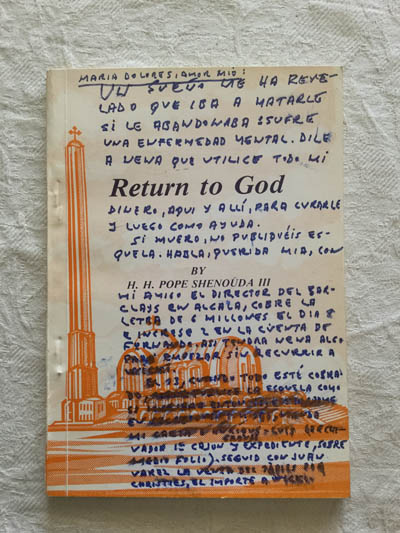 MARIA DOLORES, AMOR MIO:
UN SUEÑO ME HA REVE-
LADO QUE IBA A MATARLE
SI LE ABANDONABA. SUFRE
UNA ENFERMEDAD MENTAL. DILE
A NENA QUE UTILICE TODO MI
Return to God
DINERO, AQUI Y ALLÍ, PARA CURARLE
Y LUEGO COMO AYUDA.
SI MUERO, NO PUBLIQUÉIS ES-
QUELA. HABLA, QUERIDA MIA, CON
BY
H. H. POPE SHENOÛDA III
MI AMIGO EL DIRECTOR DEL BAR-
CLAYS EN ALCALA, COBRE LA
LETRA DE 6 MILLONES EL DIA 8
E INGRESE 2 EN LA CUENTA DE
FERNANDO. ASI TENDRA NENA ALGO
PARA EMPEZAR SIN RECURRIR A
CUANDO TODO ESTÉ COBRA-
ESCUELA COMO
MI
VADOR 1º CAJON Y EXPEDIENTE, SOBRE
MEDIO FOLIO). SEGUID CON JUAN
VAREZ LA VENTA DEL TÀPIES POR
CHRISTIES, EL IMPORTE A